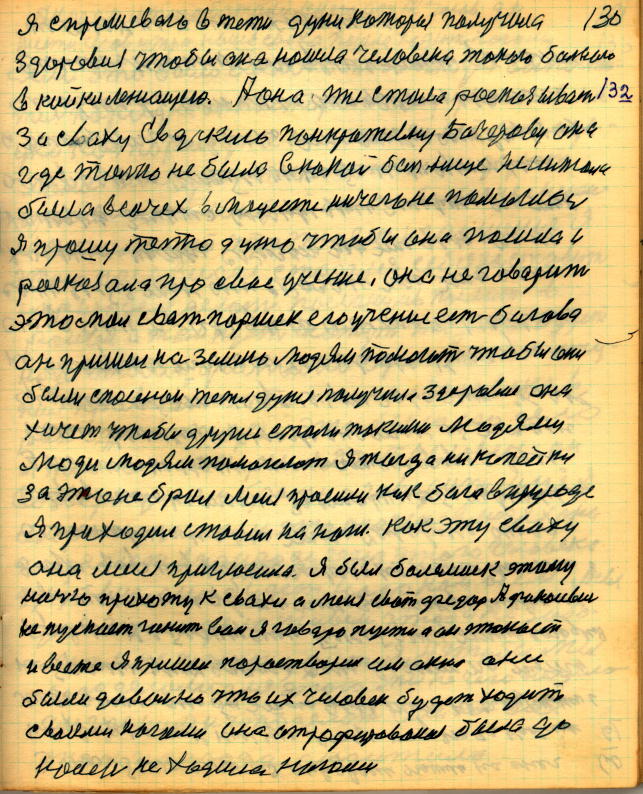 Я спрошевого в тети дуни которая получила 130
Здоровия чтобы она нашла человека токого больного
в койки лежащего. А она же стала росказывать 132
За сваху Евдокию понкратевну Бочарову она
где только не была в какой больнице не лижала
была в сочех в мацести ничево не помогло
Я прошу тётю дуню чтобы она пошла и
росказала про свое учение, она не говарит
это мой сват поршек его учение есть богова
он пришел на землю людям помогат чтобы они
были спасеной тетя дуня получила здоровие она
хочет чтобы други стали такими людями
люди людям помогают Я тогда ни копейки
за это не брал меня просили как бога в природе
Я приходил ставил на ноги. как эту сваху
она меня приглосила. Я был болшиек этому
начто прихожу к свахи а меня сват федор
не пускает гонит вон Я говорю пусти а он
и все же Я пришел поростворил им окна они
были довольно что их человек будет ходить
своими ногами она отрофирована была до
не ходила ногами